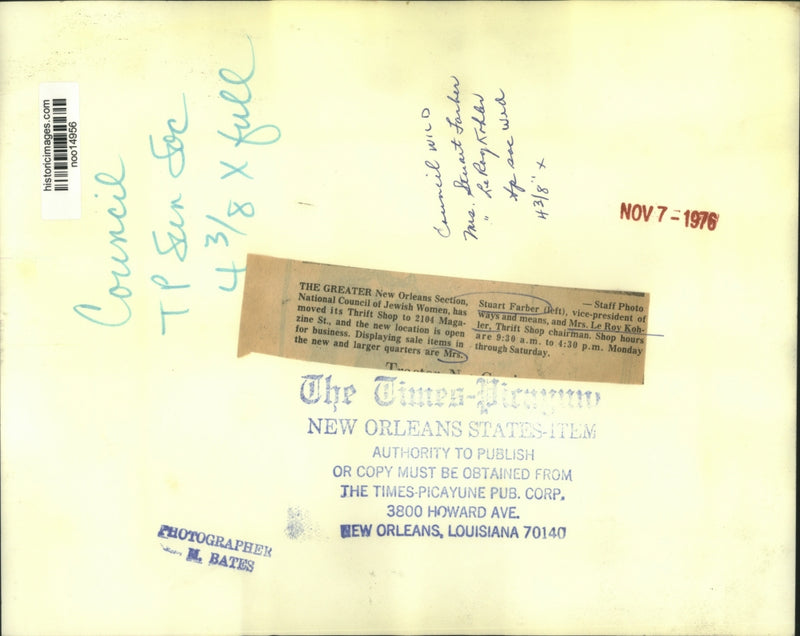 historicimages.com
noo14956
Council
TP Sun Soc
4 3/8 X full
Council WILD
Mrs. Stuart Farber
" Le Roy Kohler
tp soc wed
4 3/8" x
NOV 7 - 1976
THE GREATER New Orleans Section,
National Council of Jewish Women, has
moved its Thrift Shop to 2104 Maga-
zine St., and the new location is open
for business. Displaying sale items in
the new and larger quarters are Mrs.
— Staff Photo
Stuart Farber (left), vice-president of
ways and means, and Mrs. Le Roy Koh-
ler, Thrift Shop chairman. Shop hours
are 9:30 a.m. to 4:30 p.m. Monday
through Saturday.
The Times-Picayune
NEW ORLEANS STATES-ITEM
AUTHORITY TO PUBLISH
OR COPY MUST BE OBTAINED FROM
THE TIMES-PICAYUNE PUB. CORP.
3800 HOWARD AVE.
NEW ORLEANS, LOUISIANA 70140
PHOTOGRAPHER
M. BATES